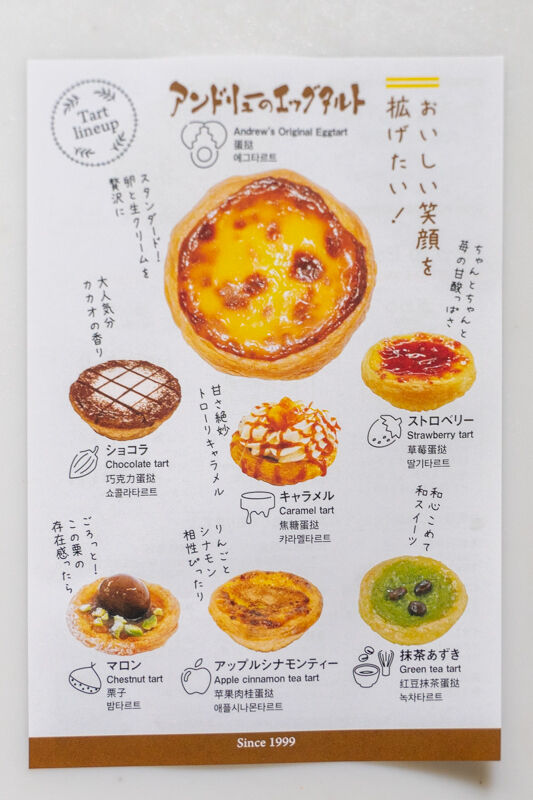 Tart
lineup
アンドリューのエッグタルト
Andrew's Original Eggtart
蛋挞
에그타르트
おいしい笑顔を
拡げたい!
スタンダード!
卵と生クリームを
贅沢に
ちゃんとちゃんと
苺の甘酸っぱさ
大人気分
カカオの香り
ショコラ
Chocolate tart
巧克力蛋挞
쇼콜라타르트
甘さ絶妙
トローリキャラメル
キャラメル
Caramel tart
焦糖蛋挞
캬라멜타르트
ストロベリー
Strawberry tart
草莓蛋挞
딸기타르트
ごろっと!
この栗の
存在感ったら
マロン
Chestnut tart
栗子
밤타르트
りんごと
シナモン
相性ぴったり
アップルシナモンティー
Apple cinnamon tea tart
苹果肉桂蛋挞
애플시나몬타르트
和心こめて
和スイーツ
抹茶あずき
Green tea tart
紅豆抹茶蛋挞
녹차타르트
Since 1999